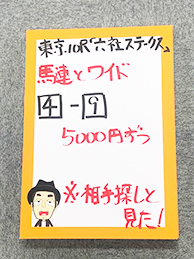 東京10R「六社ステークス」
馬連とワイド
4-9
5000円ずつ
※相手探しと
見た!